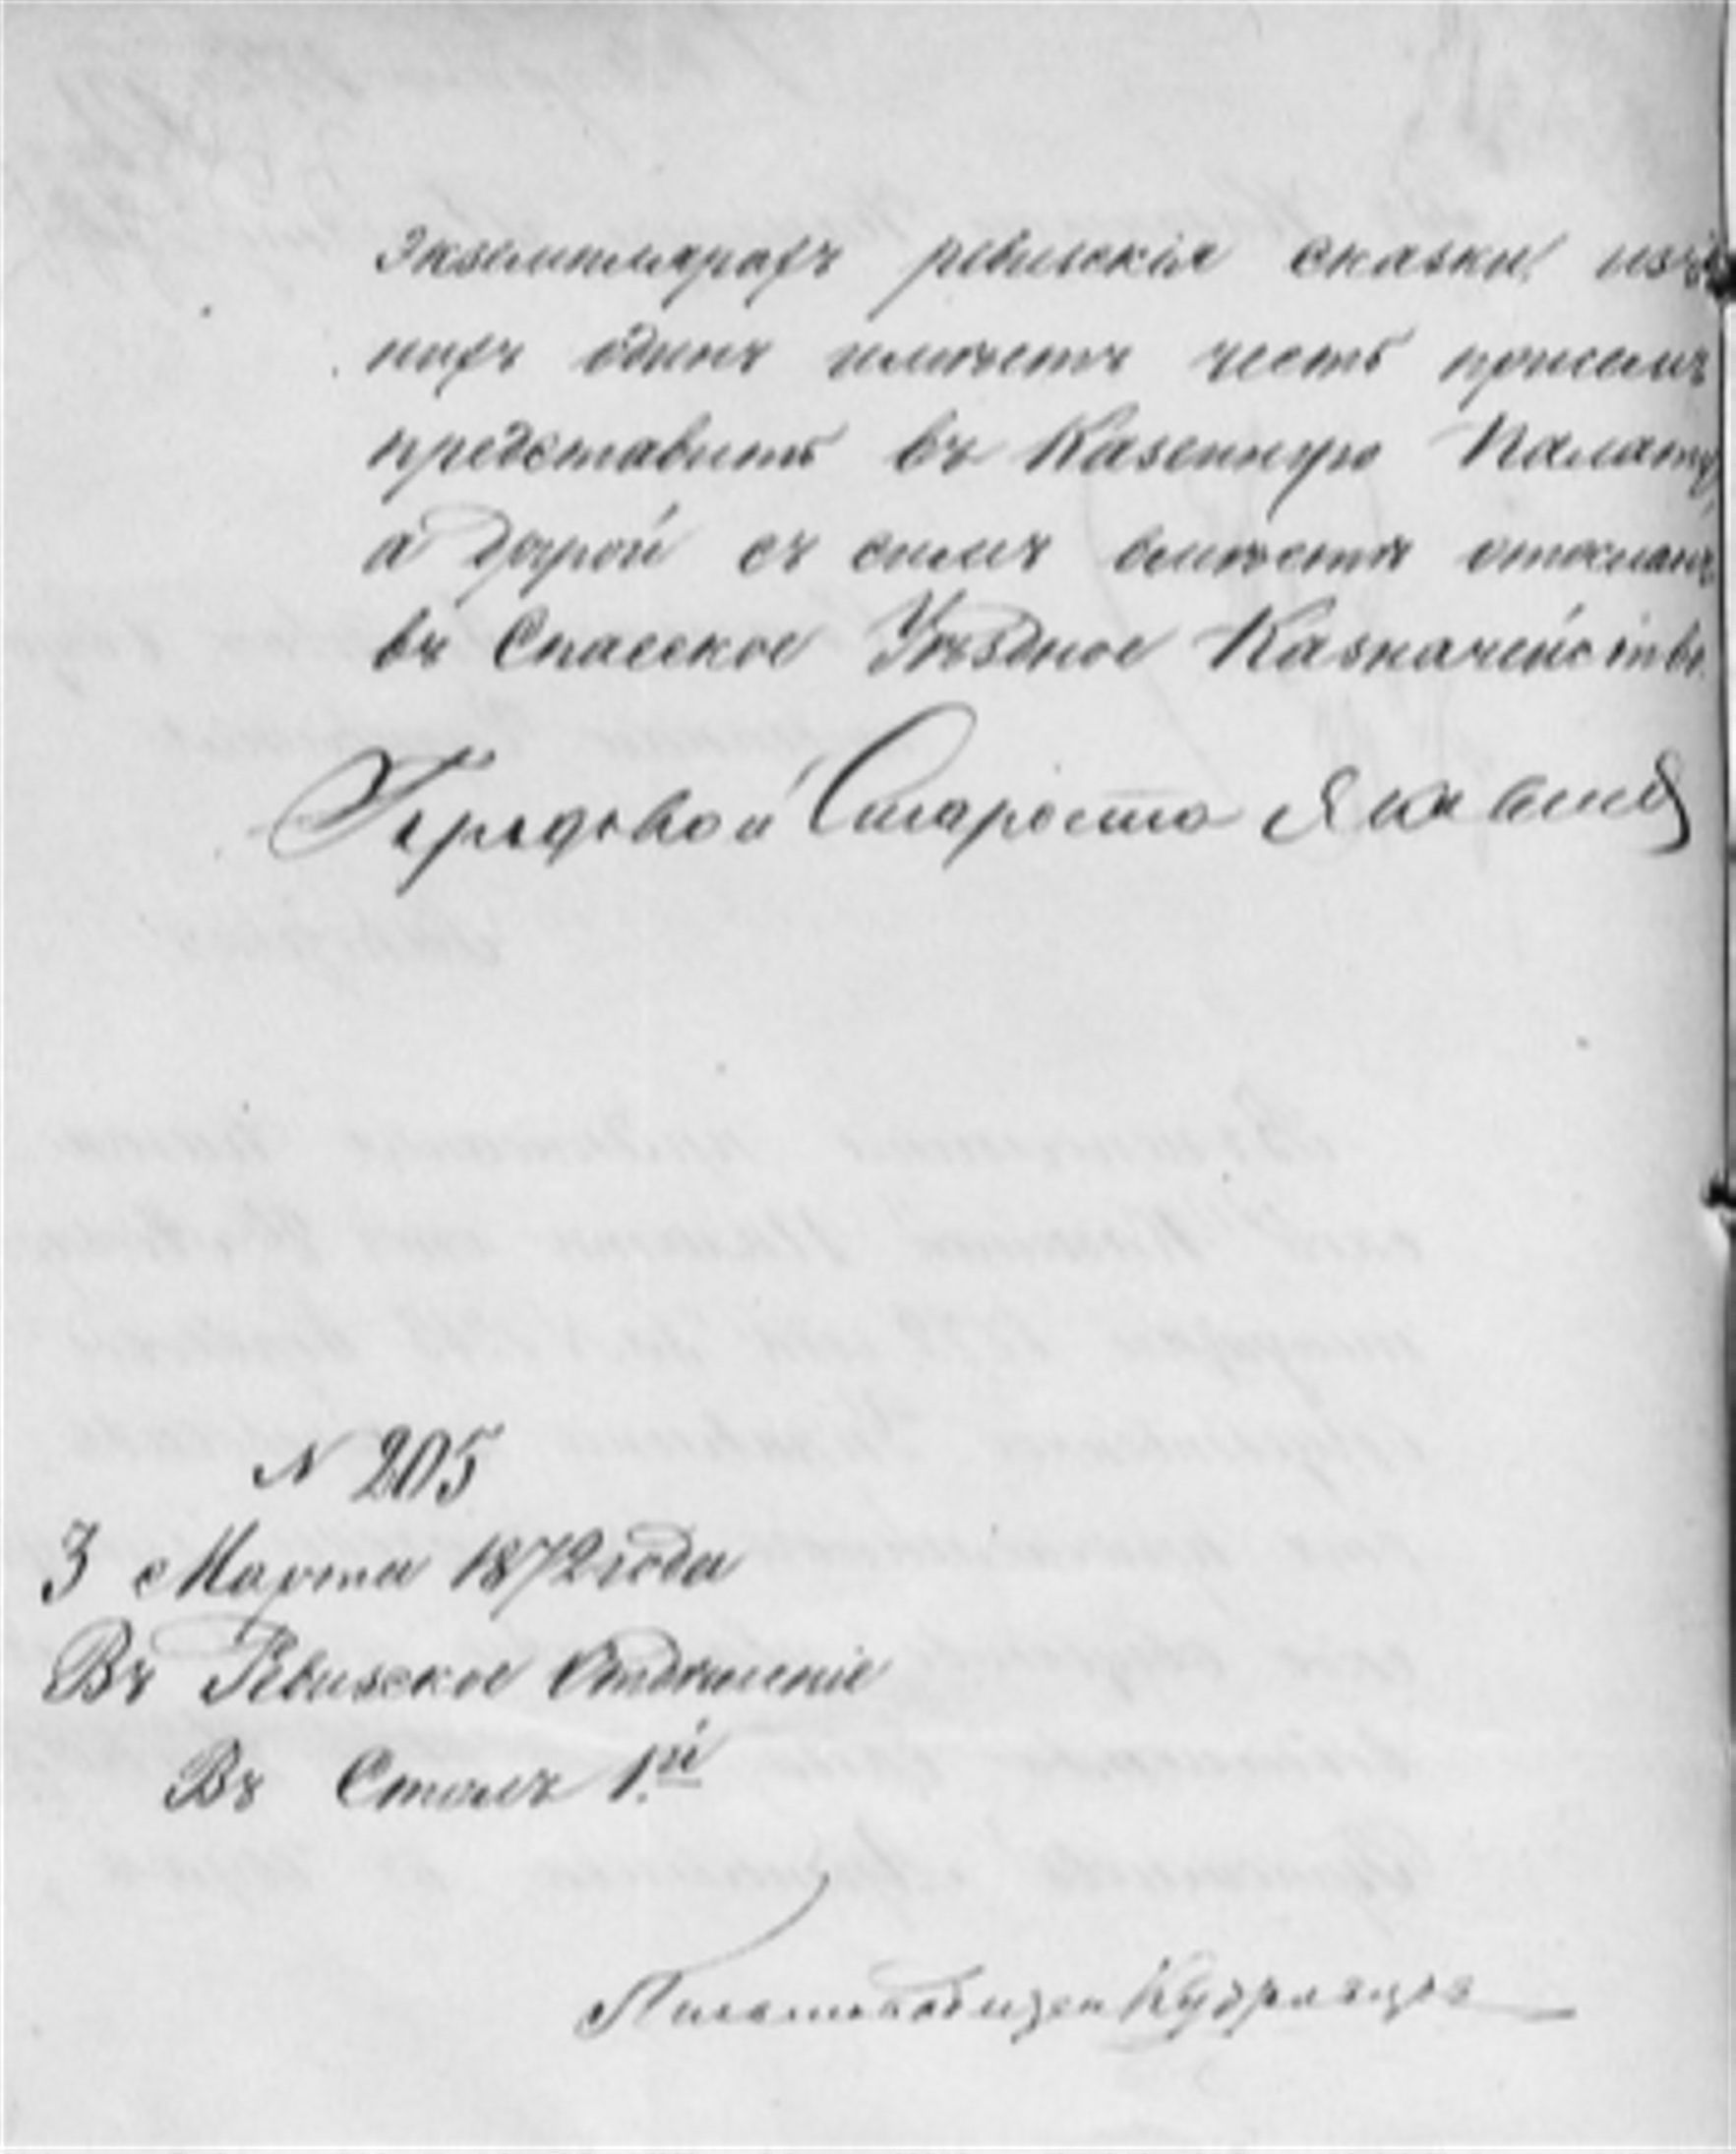 экземплярахъ ревизскія сказки, изъ
нихъ одинъ имѣетъ честь присемъ
представить въ Казенную Палату,
а другой съ симъ вмѣстѣ отосланъ
въ Спасское Уѣздное Казначейство.
Городовой Староста Яковлев
N 205
3 Марта 1872 года
Въ Ревизское Отдѣленіе
Въ Столъ 1.й